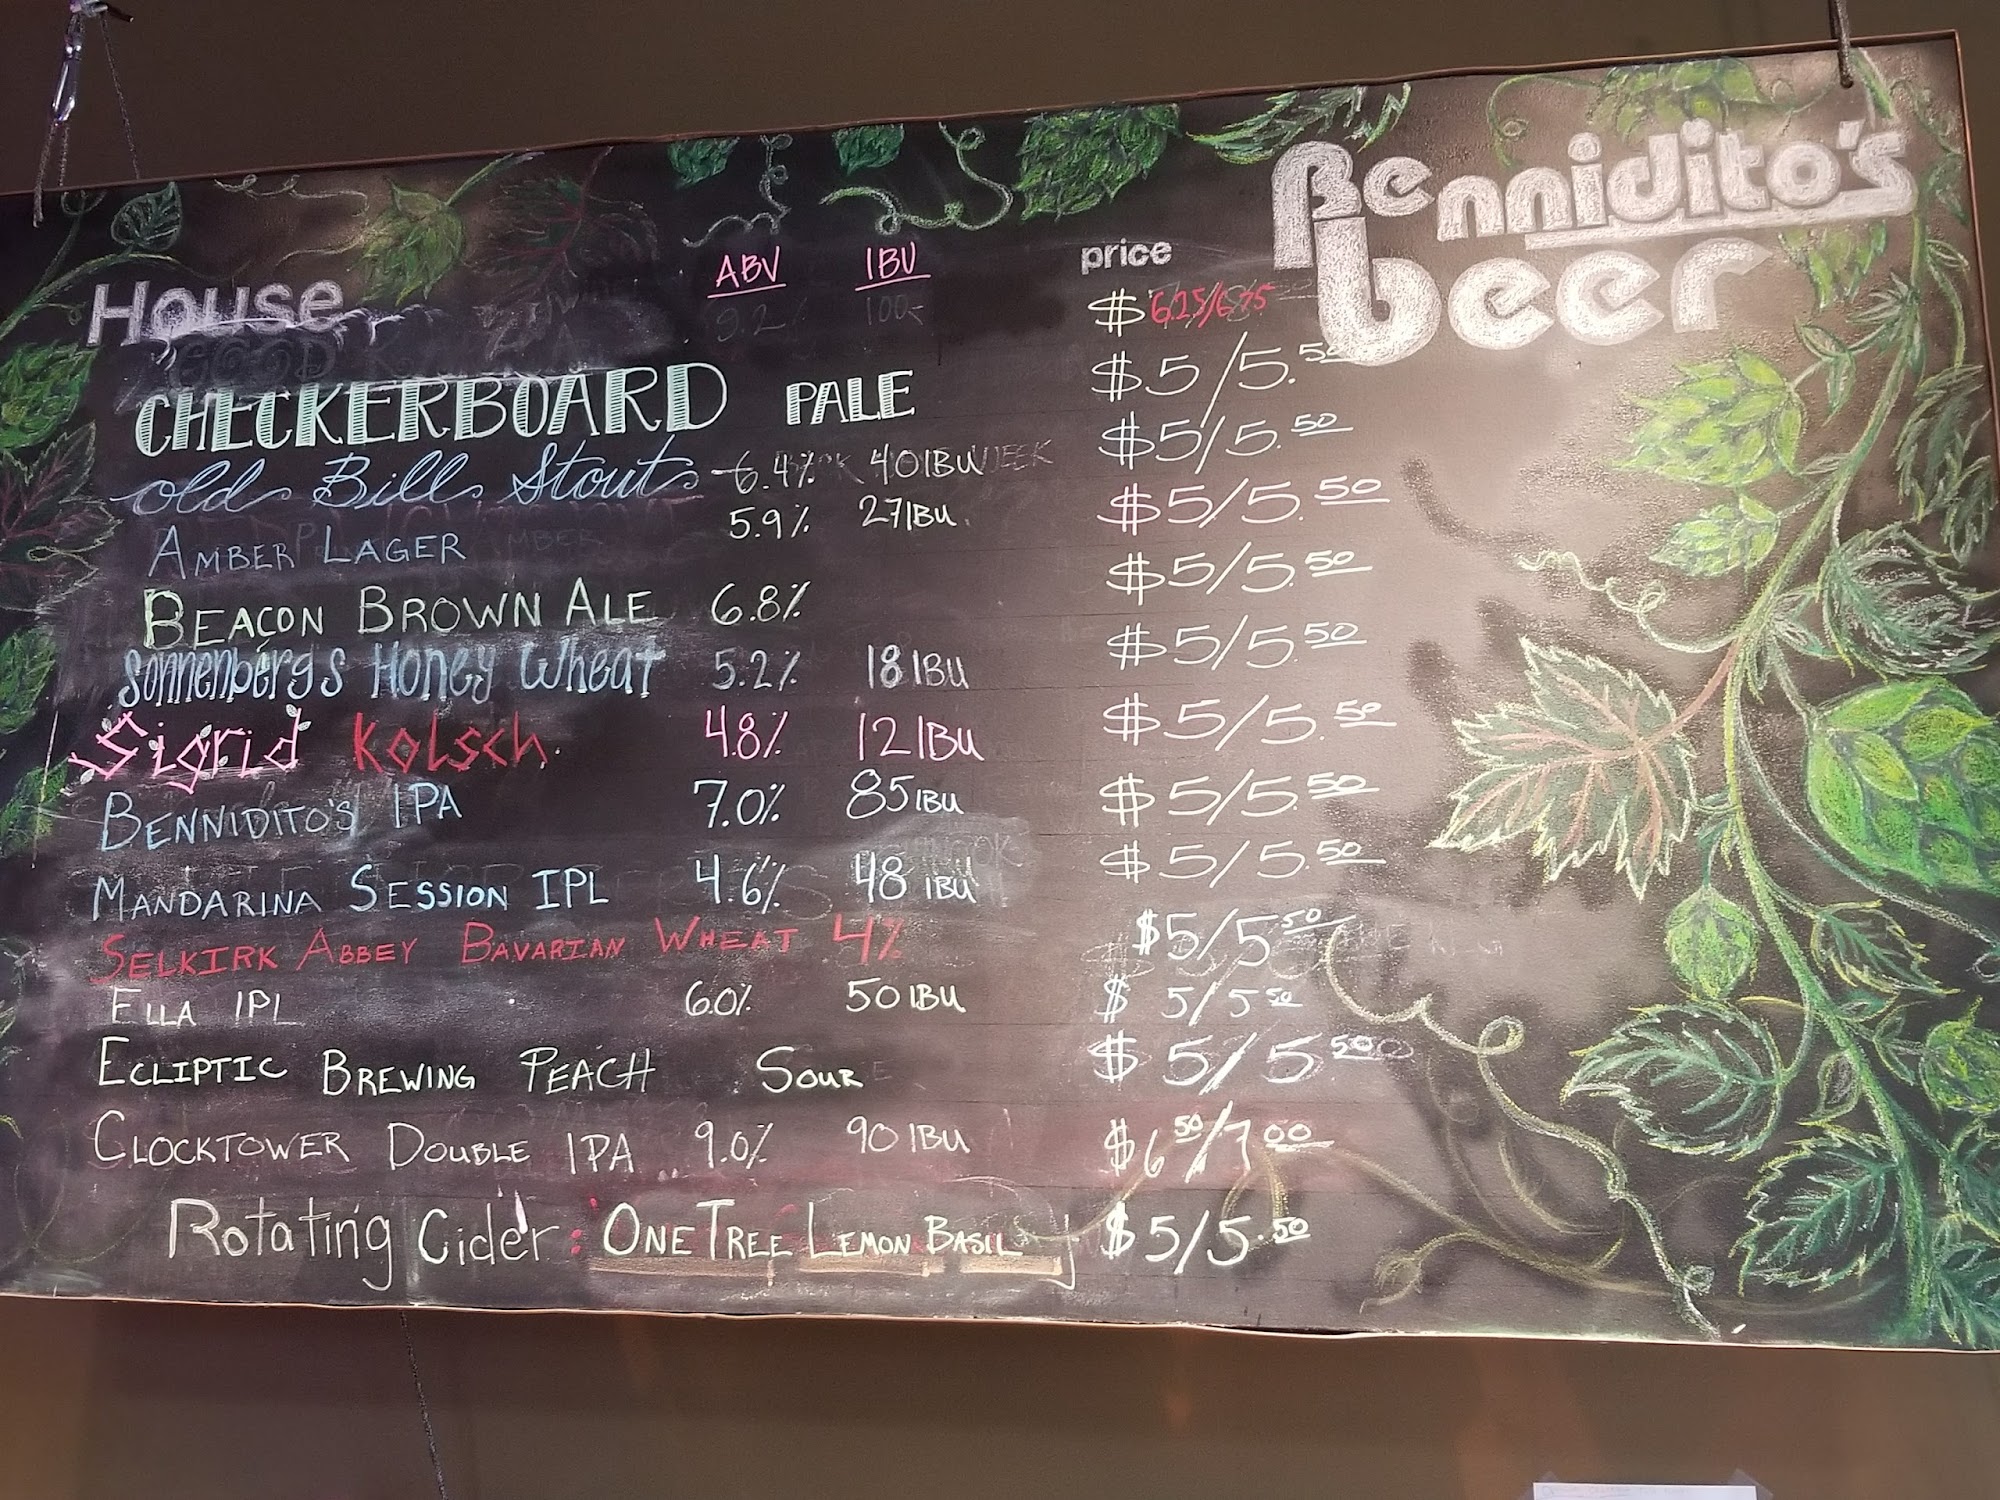 Bennidito's
beer
ABV IBU price
House 9.2% 100 $ 6.25/6.75
CHECKERBOARD PALE $5/5.50
old Bill Stout 6.4% 40 IBU $5/5.50
AMBER LAGER 5.9% 27 IBU $5/5.50
BEACON BROWN ALE 6.8% $5/5.50
Sonnenbergs Honey Wheat 5.2% 18 IBU $5/5.50
Sigrid Kolsch 4.8% 12 IBU $5/5.50
BENNIDITO'S IPA 7.0% 85 IBU $5/5.50
MANDARINA SESSION IPL 4.6% 48 IBU $5/5.50
SELKIRK ABBEY BAVARIAN WHEAT 4% $5/5.50
ELLA IPL 6.0% 50 IBU $5/5.50
ECLIPTIC BREWING PEACH SOUR $5/5.50
CLOCKTOWER DOUBLE IPA 9.0% 90 IBU $6.50/7.00
Rotating Cider: ONE TREE LEMON BASIL $5/5.50